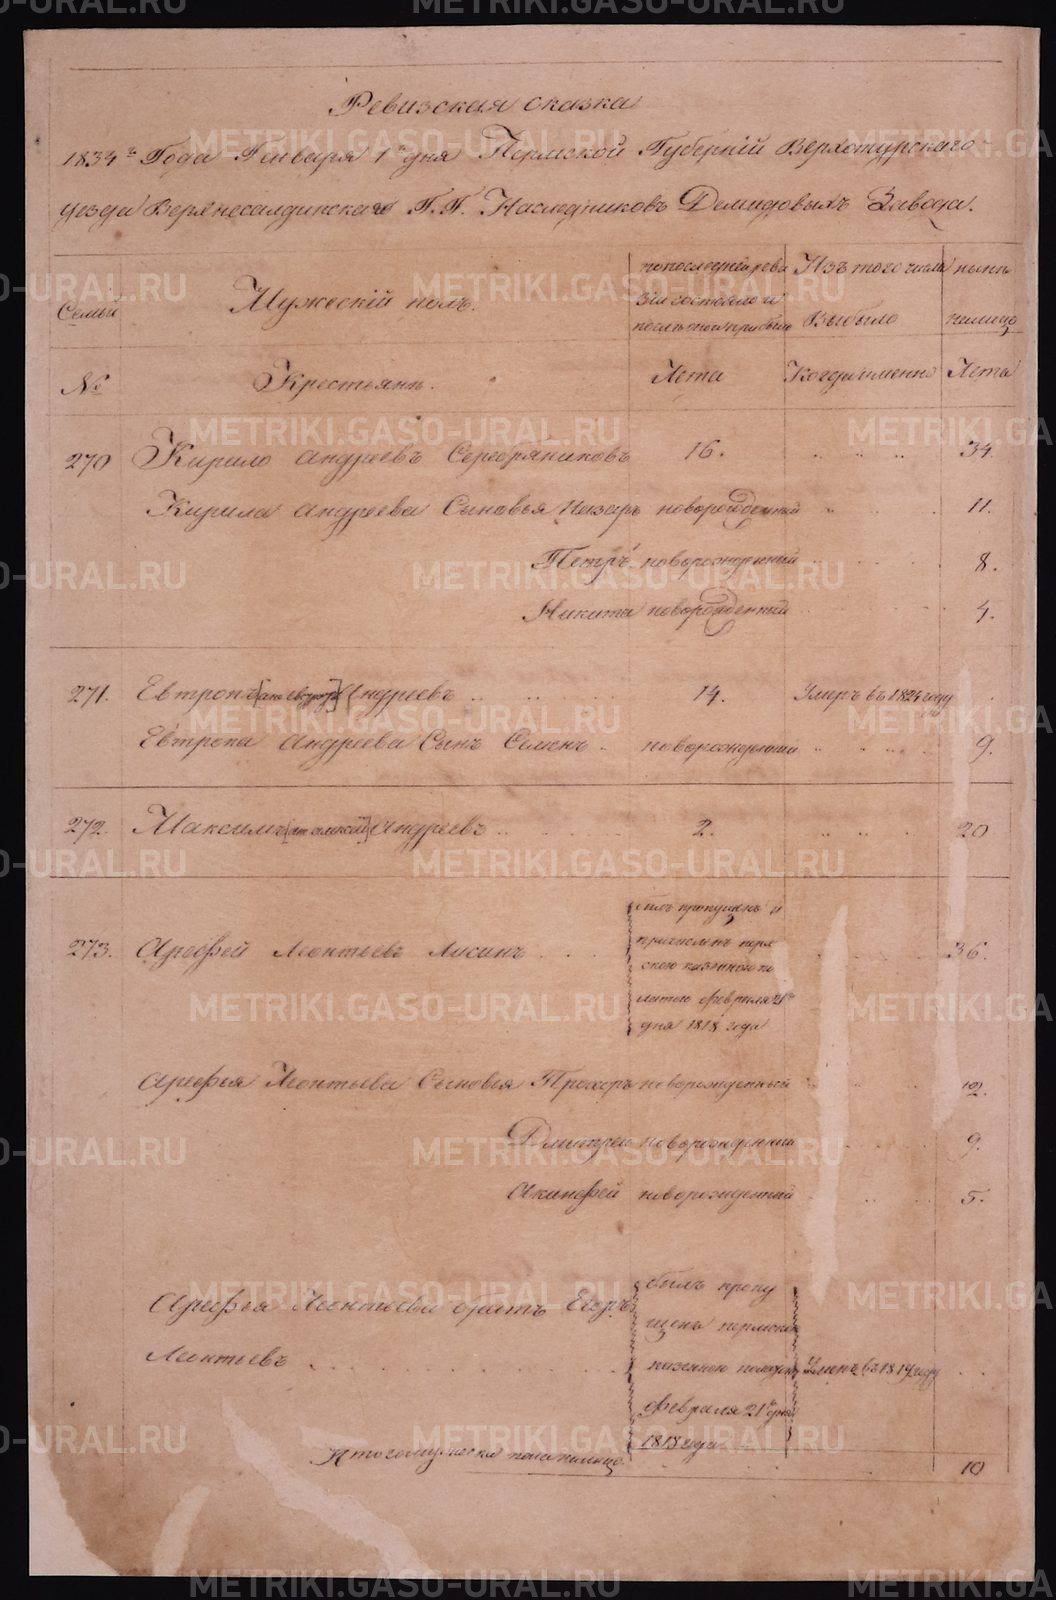 Ревизская сказка
1834го Года Января 1го дня Пермской Губерніи Верхотурскаго
уезда Верхнесалдинскаго Г.Г. Наследниковъ Демидовыхъ Завода.
Семьи
Мужескій полъ.
по последней реви
зіи состояло и
после оной прибыло
Изъ того числа
Выбыло
ныне
налицо
№
Крестьяне.
Лета
Когда именно
Лета
270 Кирило Андреевъ Серебряниковъ 16. 34.
Кирила Андреева Сыновья Назаръ новорожденный 11.
Петръ новорожденный 8.
Никита новорожденный 4.
271. Евтропъ Андреевъ 14. Умеръ въ 1824 году
Евтропа Андреева Сынъ Семенъ новорожденный 9.
272. Максимъ Андреевъ 2. 20
273. Арефей Леонтьевъ Лисинъ 36.
былъ пропущенъ и
скою казенною по
латою февраля 21го
дня 1818 года
Арефья Леонтьева Сыновья Прохоръ новорожденный 12.
Дмитрей новорожденный 9.
Акинфей новорожденный 5.
Арефья Леонтьева братъ Егоръ
Леонтьевъ
былъ пропу
щенъ пермскою
казенною палатою
февраля 21го дня
1818 года
Умеръ въ 1819 году
Итого мужеска пола налицо. 10
METRIKI.GASO-URAL.RU